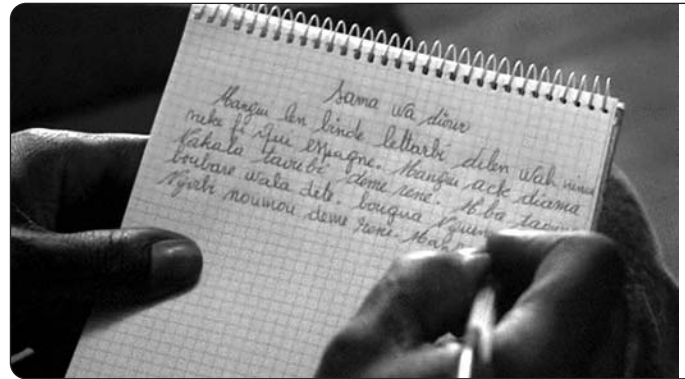 Sama wa diour
Mangui len binde lettarbi dilen wah
neke fi gui espagne. Mangui ack diama
Kakala tavebi deme rene. Mba
boubare wala dete. bougua
Nguibi noumou deme rene.